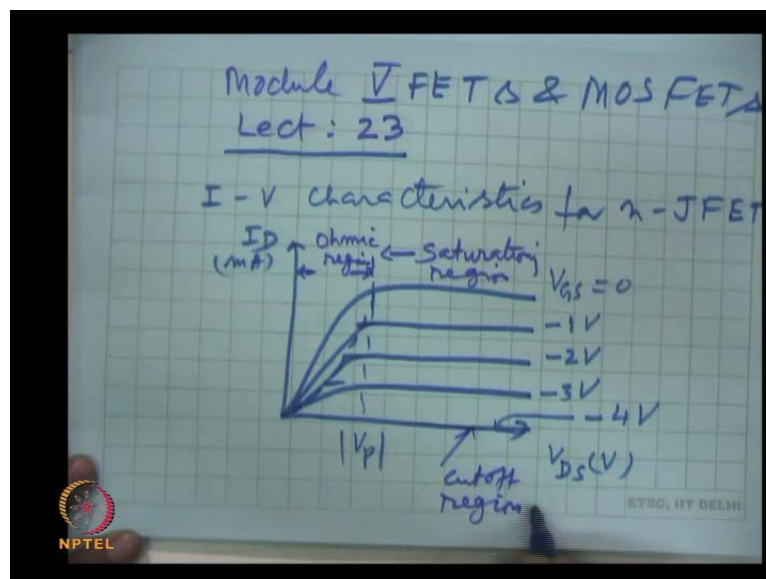 Module V FETs & MOSFETs
Lect : 23
I - V characteristics for n-JFET
ID
(mA)
ohmic
region
Saturation
region
VGS = 0
-1V
-2V
-3V
-4V
|Vp|
VDS (V)
cutoff
region
ETSC, IIT DELHI
NPTEL